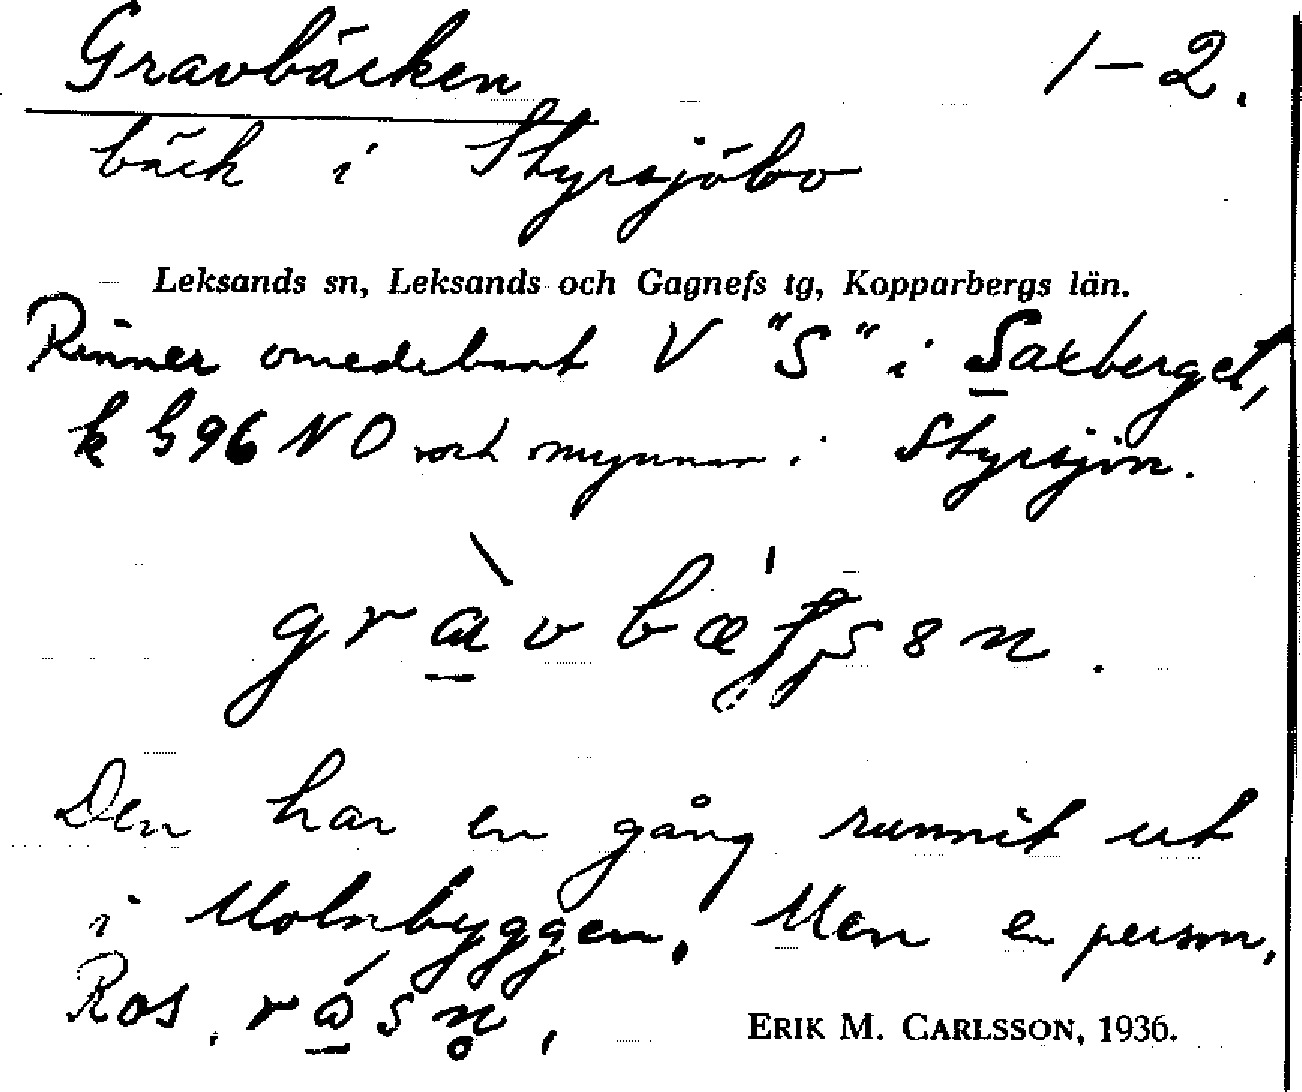 Gravbäcken 1–2.
bäck i Styrsjöbo
Leksands sn, Leksands och Gagnefs tg, Kopparbergs län.
Rinner omedelbart V "S" i Saxberget,
k G96 NO och mynnar i Styrsjön.
Den har en gång runnit ut
i Molnbyggen. Men en person,
Ros.
ERIK M. CARLSSON, 1936.